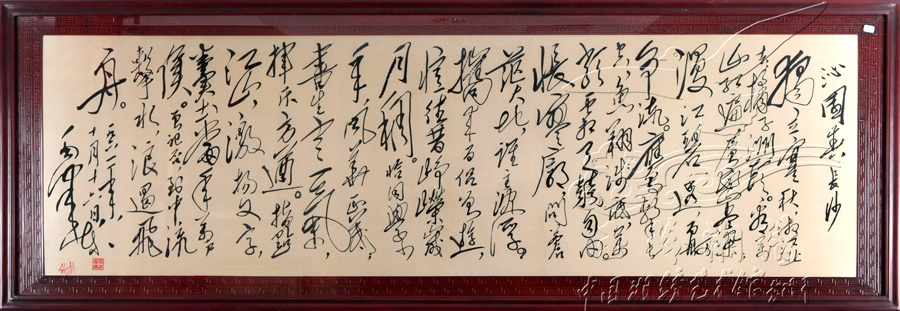 沁園春 長沙
獨立寒秋,湘江北
去,橘子洲頭。看萬
山紅遍,層林盡染,
漫江碧透,百舸
爭流。鷹擊長空,
魚翔淺底,萬
類霜天競自由。
悵寥廓,問蒼
茫大地,誰主沉浮。
攜來百侶曾遊,
憶往昔崢嶸歲
月稠。恰同學少
年,風華正茂,
書生意氣,
揮斥方遒。指點
江山,激揚文字,
糞土當年萬戶
侯。曾記否,到中流
擊水,浪遏飛
舟。
十月十六日
毛澤東
中国刺绣艺术馆